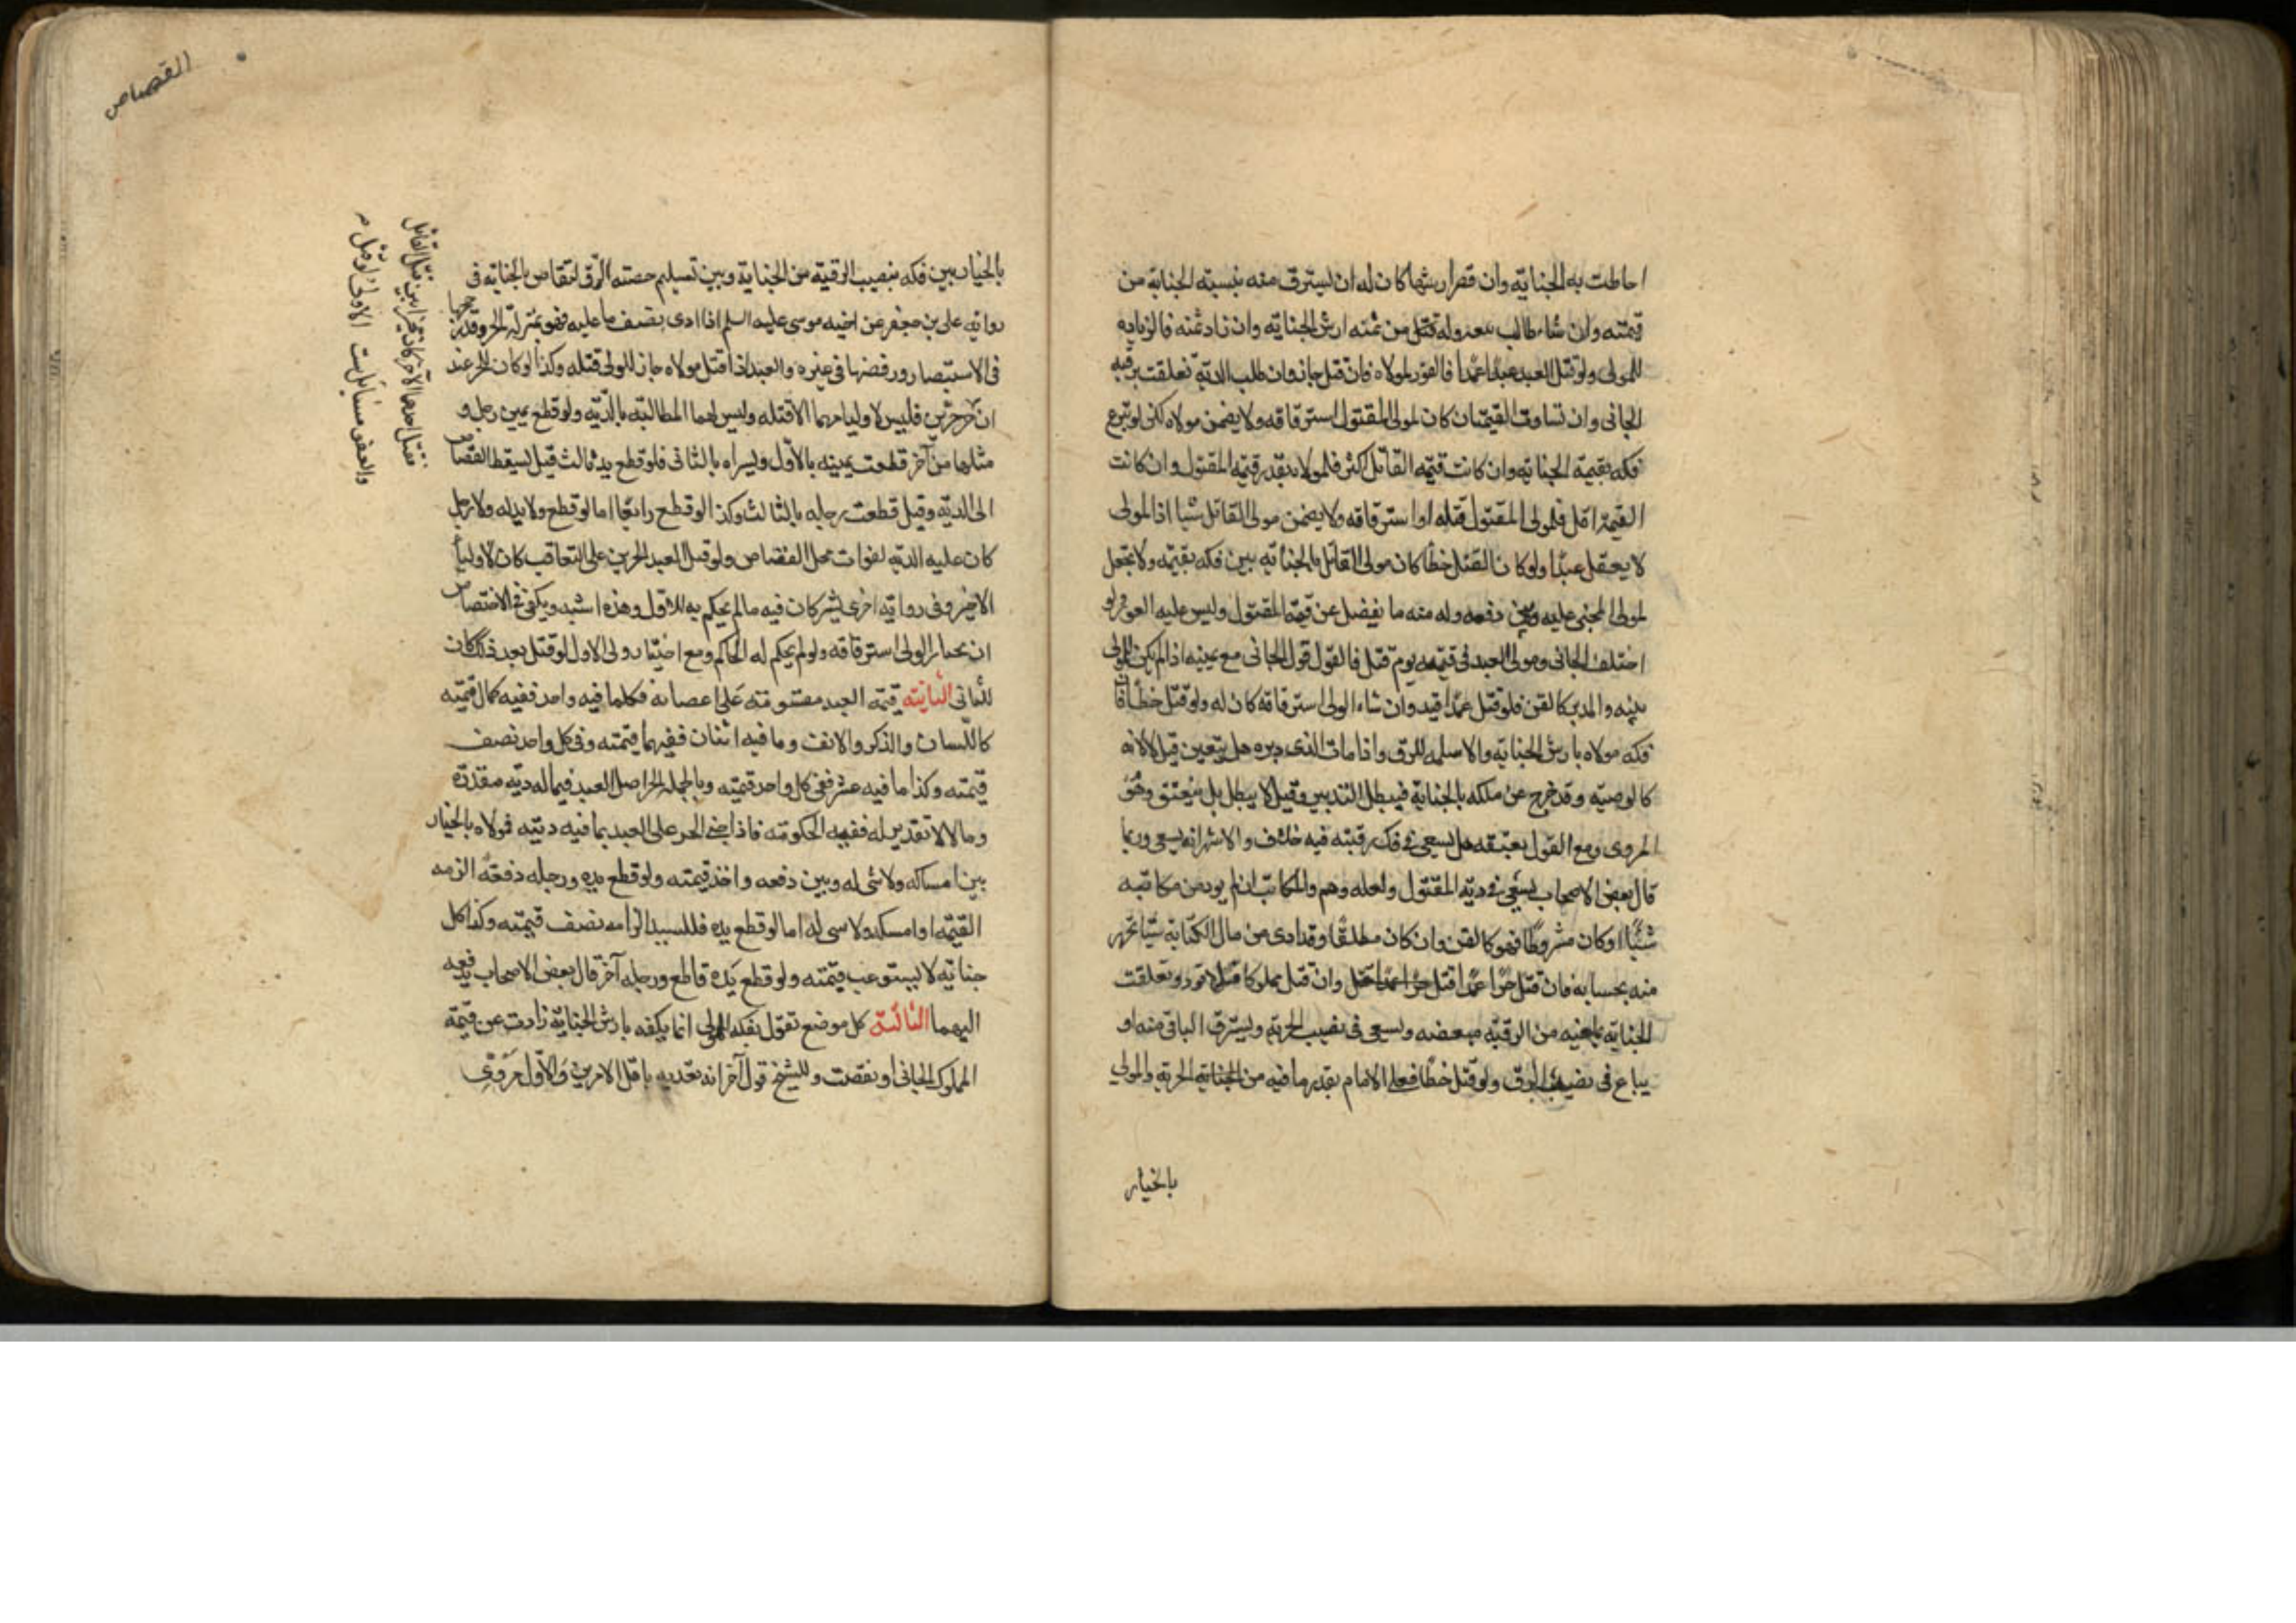 احاطت به الجناية وان قصر ارشها كان له ان يسترق منه بنسبة الجناية من
قيمته وان شاء طالب ببيعه وله من ثمنه ارش الجناية وان زاد ثمنه فالزيادة
للمولى ولو قتل العبد عبدا عمدا فالقود لمولاه فان قتل جاز وان طلب الدية تعلقت برقبه
الجاني وان تساوت القيمتان كان لمولى المقتول استرقاقه ولا يضمن مولاه لكن لو تبرع
فكه بقيمة الجناية وان كانت قيمة القاتل اكثر فلمولاه بقدر قيمة المقتول وان كانت
القيمة اقل فلمولى المقتول قتله او استرقاقه ولا يضمن مولى القاتل شيا اذ المولى
لا يعقل عبدا ولو كان القتل خطأ كان مولى القاتل بالجناية بين فكه بقيمته ولا يتخير
لمولى المجنى عليه وبين دفعه وله منه ما يفضل عن قيمة المقتول وليس عليه العوز ولو
اختلف الجاني ومولى العبد في قيمته يوم قتل فالقول قول الجاني مع يمينه اذا لم يكن للمولى
بينه والمدبر كالقن فلو قتل عمدا قيد وان شاء الولى استرقاقه كان له ولو قتل خطأ فان
فكه مولاه بارش الجناية والا سلمه للرق واذا مات الذى دبره هل ينعتق قيل لا لانه
كالوصيه وقد خرج عن ملكه بالجناية فيبطل التدبير وقيل لا يبطل بل ينعتق وهو
المروى ومع القول بعتقه هل يسعى في فك رقبته فيه خلاف والاشهر انه يسعى وربما
قال بعض الاصحاب يسعى في دية المقتول ولعله وهم والمكاتب ان لم يود من مكاتبته
شيئا او كان مشروطا فهو كالقن وان كان مطلقا وقد ادى من مال الكتابة شيئا تحرر
منه بحسابه فان قتل حرا عمدا قتل وان قتل مملوكا فلا قود وتعلقت
الجناية بما فيه من الرقية مبعضه ويسعى في نصيب الحرية ويسترق الباقى منه او
يباع في نصيب الرق ولو قتل خطأ فعلى الامام بقدر ما فيه من الحرية والمولى
بالخيار
القصاص
بالخيار بين فكه بنصيب الرقية من الجناية وبين تسليم حصته الرق لتقاص بالجناية وفى
رواية على بن جعفر عن اخيه موسى عليه السلم اذا ادى نصف ما عليه فهو بمنزلة الحر وقد رجحها
في الاستبصار ورفضها في غيره والعبد اذا قتل مولاه جاز للولى قتله وكذا لو كان للحر عبد
ان حر حرين فليس لاوليائهما الا قتله وليس لهما المطالبة بالدية ولو قطع يمين رجل و
مثلها من آخر قطعت يمينه بالاول ويسراه بالثانى فلو قطع يد ثالث قيل يسقط القصاص
الى الدية وقيل قطعت رجله بالثالث وكذا لو قطع رابعا اما لو قطع ولا يد له ولا رجل
كان عليه الدية لفوات محل القصاص ولو قتل العبد الحرين على التعاقب كان لاولياء
الاخير وفى رواية اخرى يشتركان فيه ما لم يحكم به للاول وهذه اشبه ويكفى في الاختصاص
ان يختار الولى استرقاقه ولو لم يحكم له الحاكم ومع اختيار ولى الاول لو قتل بعد ذلك كان
للثانى الثانية قيمة العبد مقسومة على اعضائه فكلما فيه واحد ففيه كمال قيمته
كاللسان والذكر والانف وما فيه اثنان ففيهما قيمته وفى كل واحد نصف
قيمته وكذا ما فيه عشر ففى كل واحد قيمته وبالجملة الحر اصل العبد فيما له دية مقدرة
وما لا تقدير له ففيه الحكومة فاذا جنى الحر على العبد بما فيه ديته فمولاه بالخيار
بين امساكه ولا شى له وبين دفعه واخذ قيمته ولو قطع يده ورجله دفعة الزمه
القيمة او امسكه ولا شى له اما لو قطع يده فللسيد الزامه نصف قيمته وكذا كل
جناية لا يستوعب قيمته ولو قطع يده قاطع ورجله آخر قال بعض الاصحاب يدفعه
اليهما الثالثة كل موضع نقول بفكه المولى انما يفكه بارش الجناية زادت عن قيمة
المملوك الجانى او نقصت وللشيخ قول آخر انه يفديه باقل الامرين والاول مروى